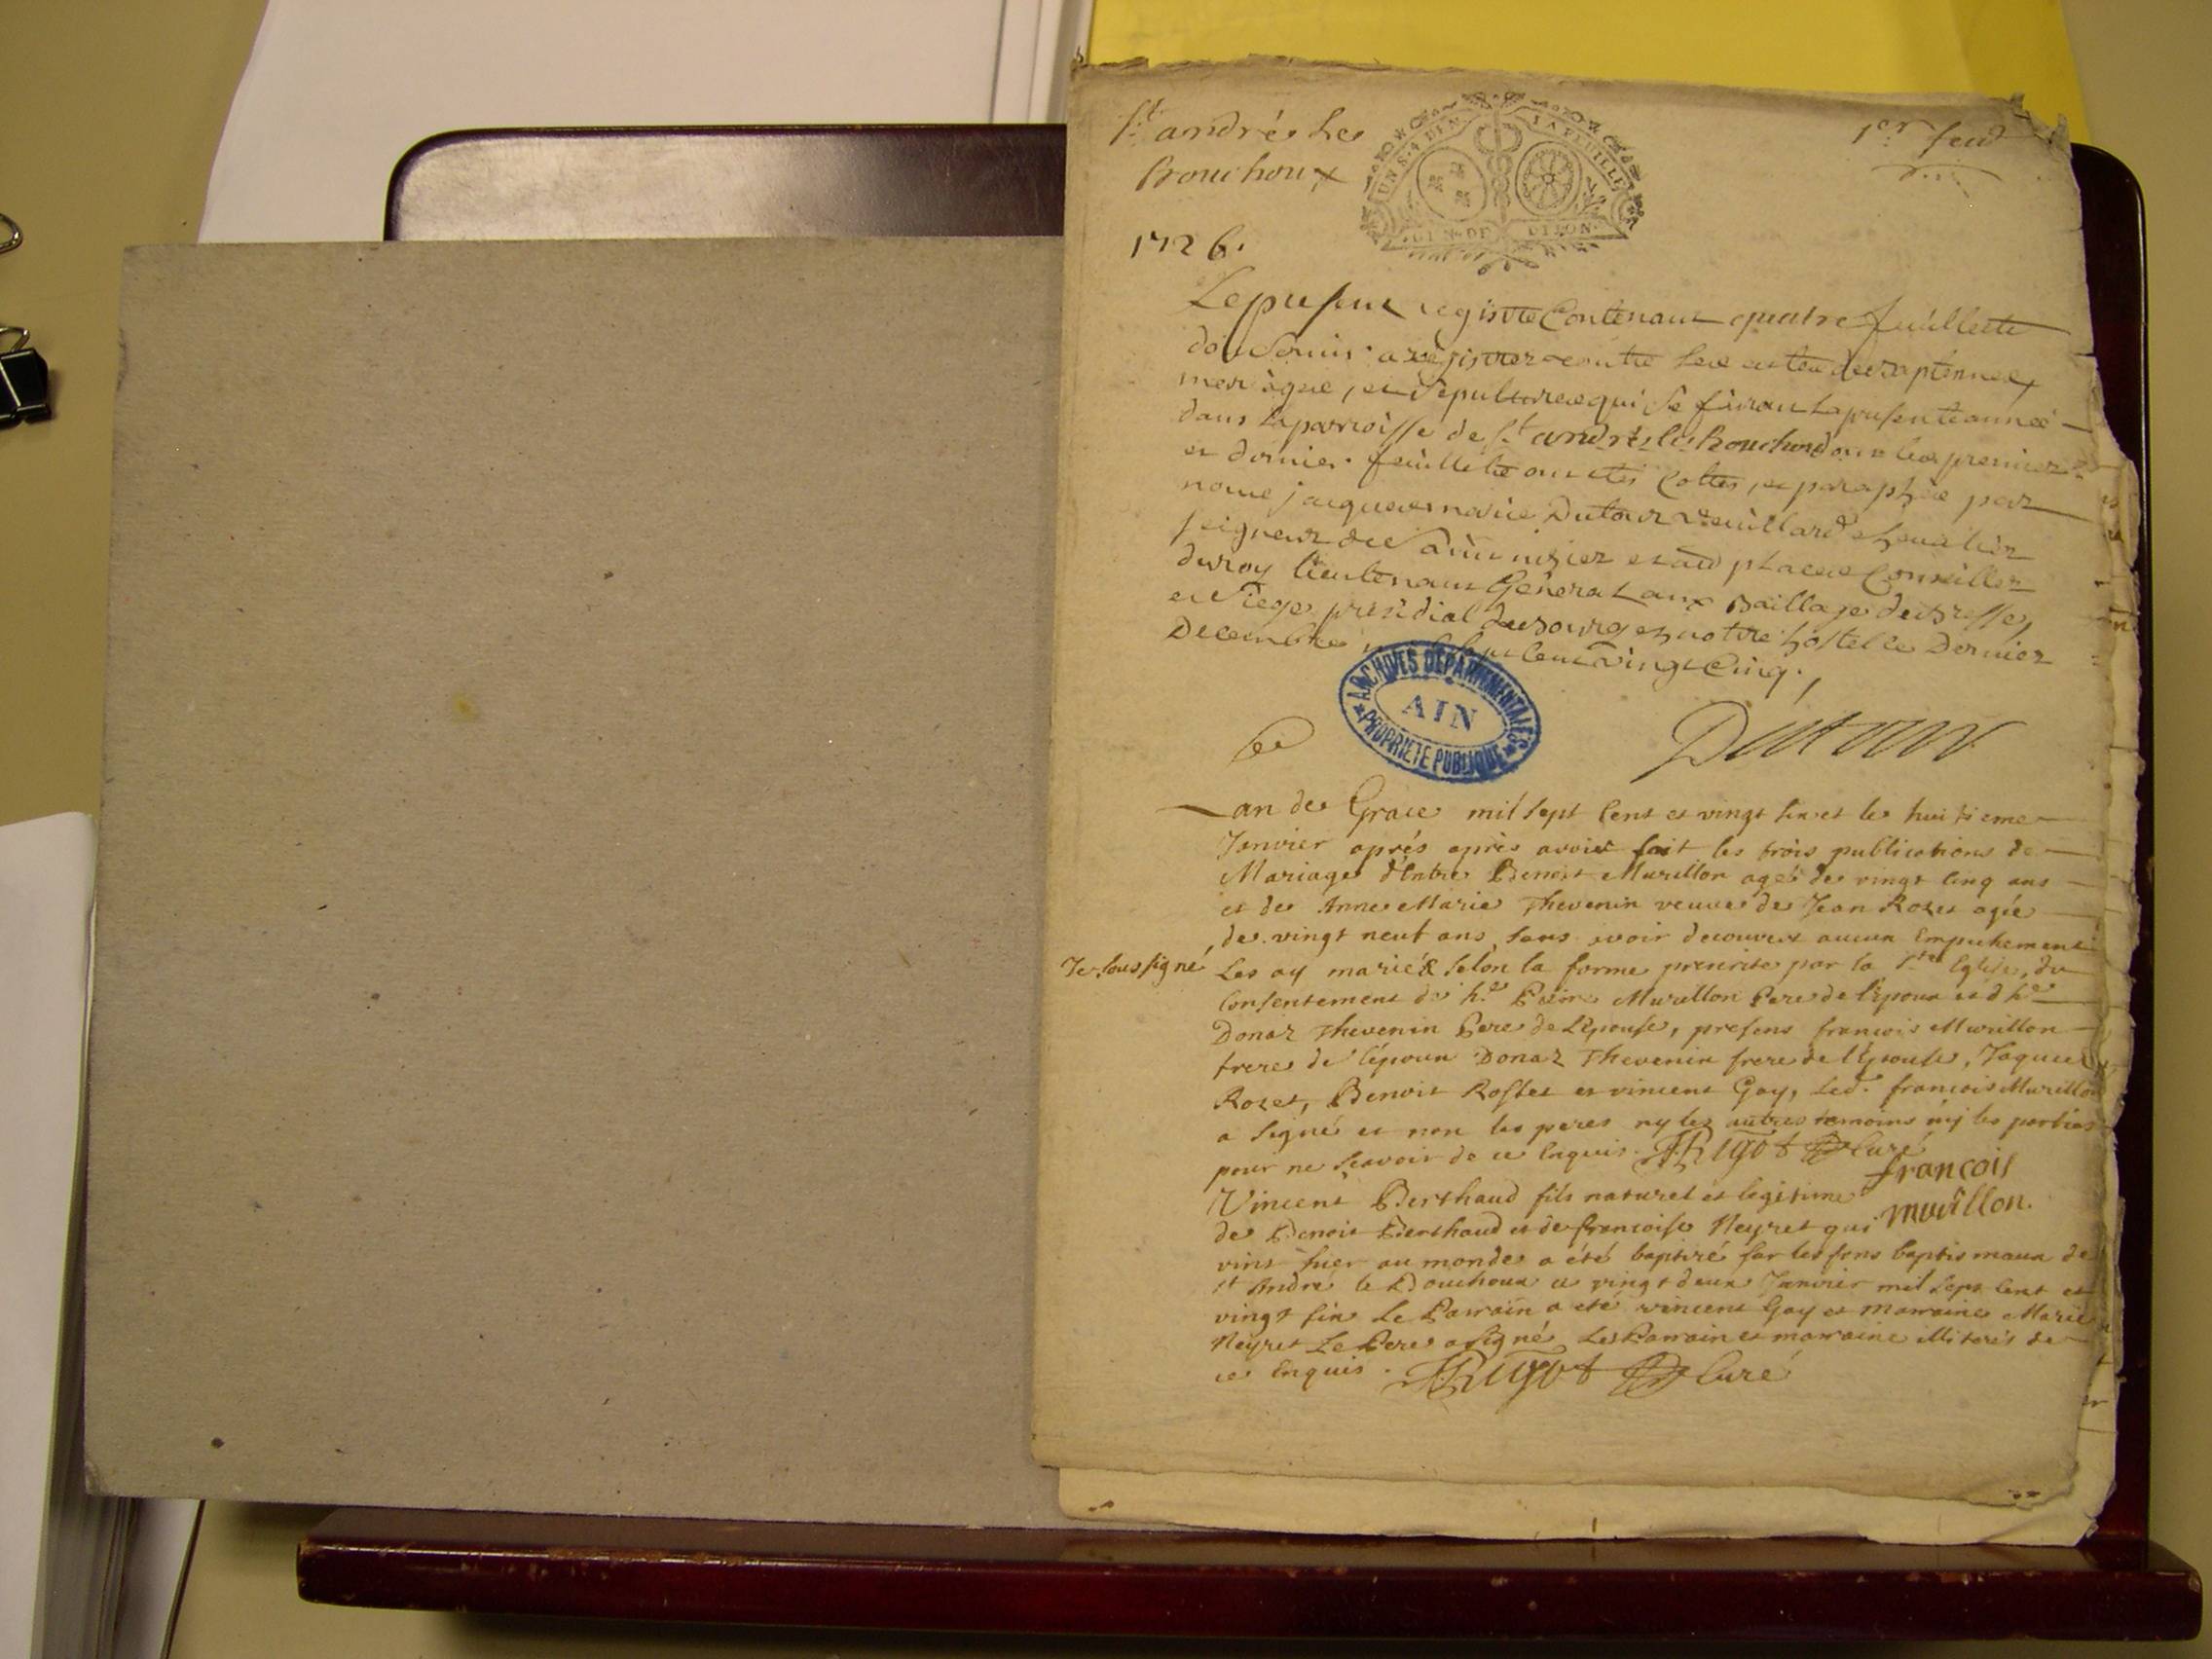 St andré les
Bouchoux
1er feuil
UN S. 4 DEN LA FEUILLE
GEN DE DIJON
1726.
Le present registre Contenant quatre feuillets
doit servir a registrer les actes des baptemes,
mariage, et Sepultures qui se feront la presente année
dans la parroisse de St andré les Bouchoux dont les premier
et dernier feuillets ont etés Cottés, et paraphés par
nous jacques marie Dutour Veuillard chevalier
seigneur de Saint nizier et autres places Conseiller
du roy lieutenant General aux Baillage de Bresse,
et Siege presidial de Bourg en notre hostel le Dernier
Decembre sept cent vingt Cinq.
ARCHIVES DEPARTEMENTALES
AIN
PROPRIETE PUBLIQUE
Dutour
L an de Grace mil sept cent et vingt six et le huitieme
Janvier aprés aprés avoir fait les trois publications de
Mariage d'Entre Benoit Murillon agé de vingt cinq ans
et de Anne Marie Thevenin veuve de Jean Rozet agée
de vingt neuf ans, sans avoir decouvert aucun Empechement
Je soussigné les ay mariés selon la forme prescrite par la Ste Eglise, du
Consentement de he Murillon Pere de l'Epoux et d he
Donaz Thevenin Pere de L'Epouse, presens francois Murillon
frere de l'époux Donaz Thevenin frere de l'Epouse, Jaques
Rozet, Benoit Rostet et vincent Gay, led. francois Murillon
a signé et non les peres ny les autres temoins nij les parties
pour ne scavoir de ce Enquis. Rigot Curé
francois
murillon.
Vincent Berthaud fils naturel et legitime
de Benoit Berthaud et de francoise Neyret qui
vint hier au monde a été baptizé sur les fons baptismaux de
St André le Bouchoux ce vingt deux Janvier mil sept cent et
vingt six Le Parrain a eté vincent Gay et marraine Marie
Neyret Le Pere a signé, Les Parrain et marraine illiterés de
ce Enquis. Rigot Curé